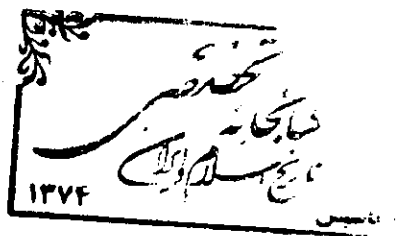 کتابخانه
تخصصی
تاریخ اسلام و ایران
۱۳۷۴
تاسیس